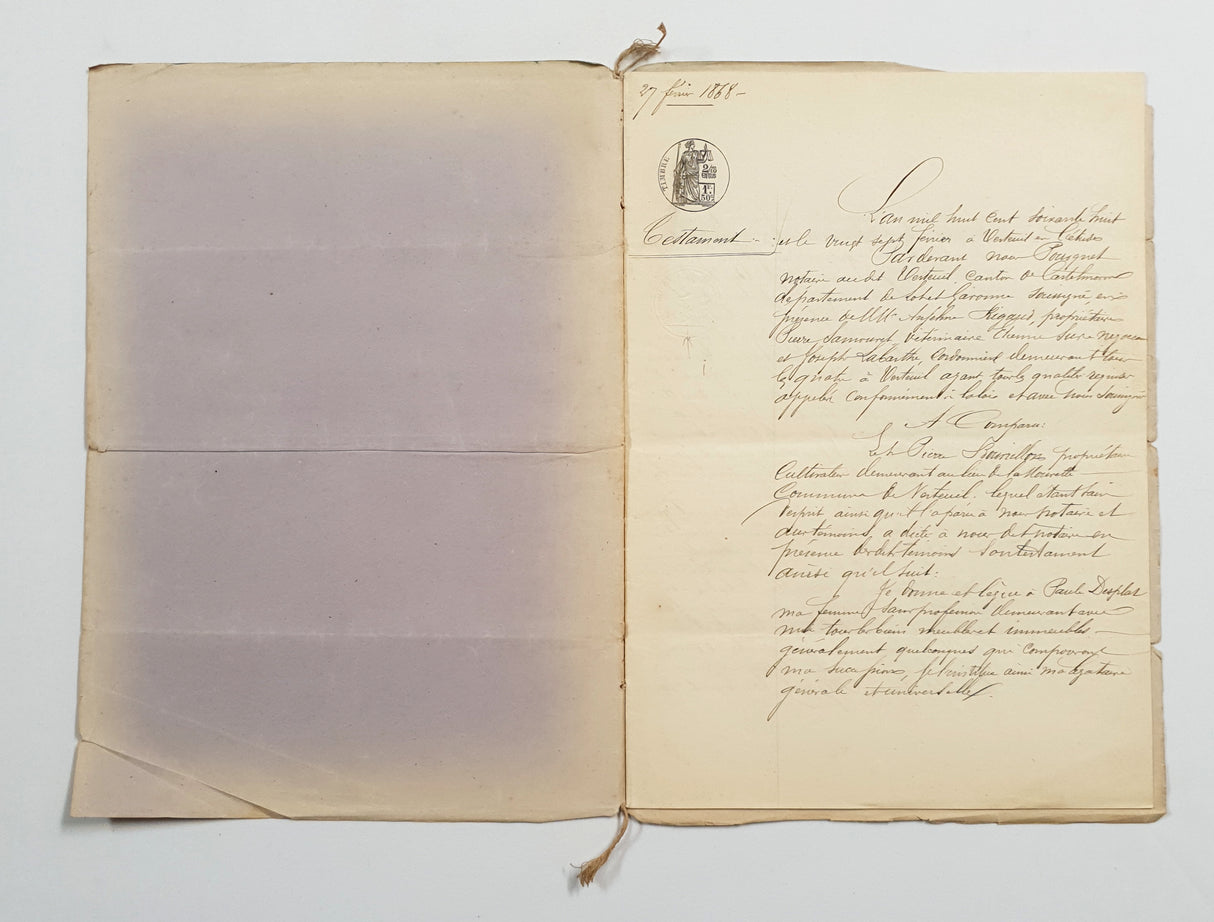 27 février 1868 -
TIMBRE
2/10
EN SUS
1F
50c
Testament
L'an mil huit cent soixante huit
et le vingt sept février à Verteuil
Pardevant nous Pouignet
notaire audit Verteuil, Canton de Castelmoron
département de Lot et Garonne soussigné, en
présence de MM. Anselme Rigaud, propriétaire
Pierre Samouret vétérinaire Etienne negociant
et Joseph Labarthe, Cordonnier demeurant tous
les quatre à Verteuil ayant tous les qualités requises
appelés conformément à la loi et avec nous soussignés
A Comparu:
Pierre propriétaire
Cultivateur demeurant au lieu de
Commune de Verteuil. lequel étant sain
d'esprit ainsi qu'il l'a paru à nous notaire et
aux témoins, a dicté à nous dit notaire en
présence desdits témoins son testament
ainsi qu'il suit:
Je donne et lègue à Paule Desplat
ma femme, sans profession demeurant avec
moi tous les biens meubles et immeubles -
généralement quelconques qui composeront
ma succession, je l'institue ainsi ma légataire
générale et universelle.